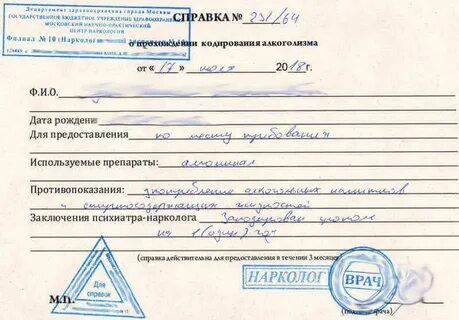 Департамент здравоохранения города Москвы
ГОСУДАРСТВЕННОЕ БЮДЖЕТНОЕ УЧРЕЖДЕНИЕ ЗДРАВООХРАНЕНИЯ
МОСКОВСКИЙ НАУЧНО-ПРАКТИЧЕСКИЙ
ЦЕНТР НАРКОЛОГИИ
Филиал № 10 (Нарколог
СПРАВКА № 231/64
о прохождении кодирования алкоголизма
от « 17 » июля 2018 г.
Ф.И.О.
Дата рождени
Для предоставления по месту требования
Используемые препараты: алминал
Противопоказания: употребление алкогольных напитков
и спиртосодержащих жидкостей
Заключения психиатра-нарколога Закодирован уколом
на 1 (один) год
(справка действительна для предоставления в течении 3 месяцев
Для
справок
М.П.
НАРКОЛОГ
ВРАЧ
(подпись врача)